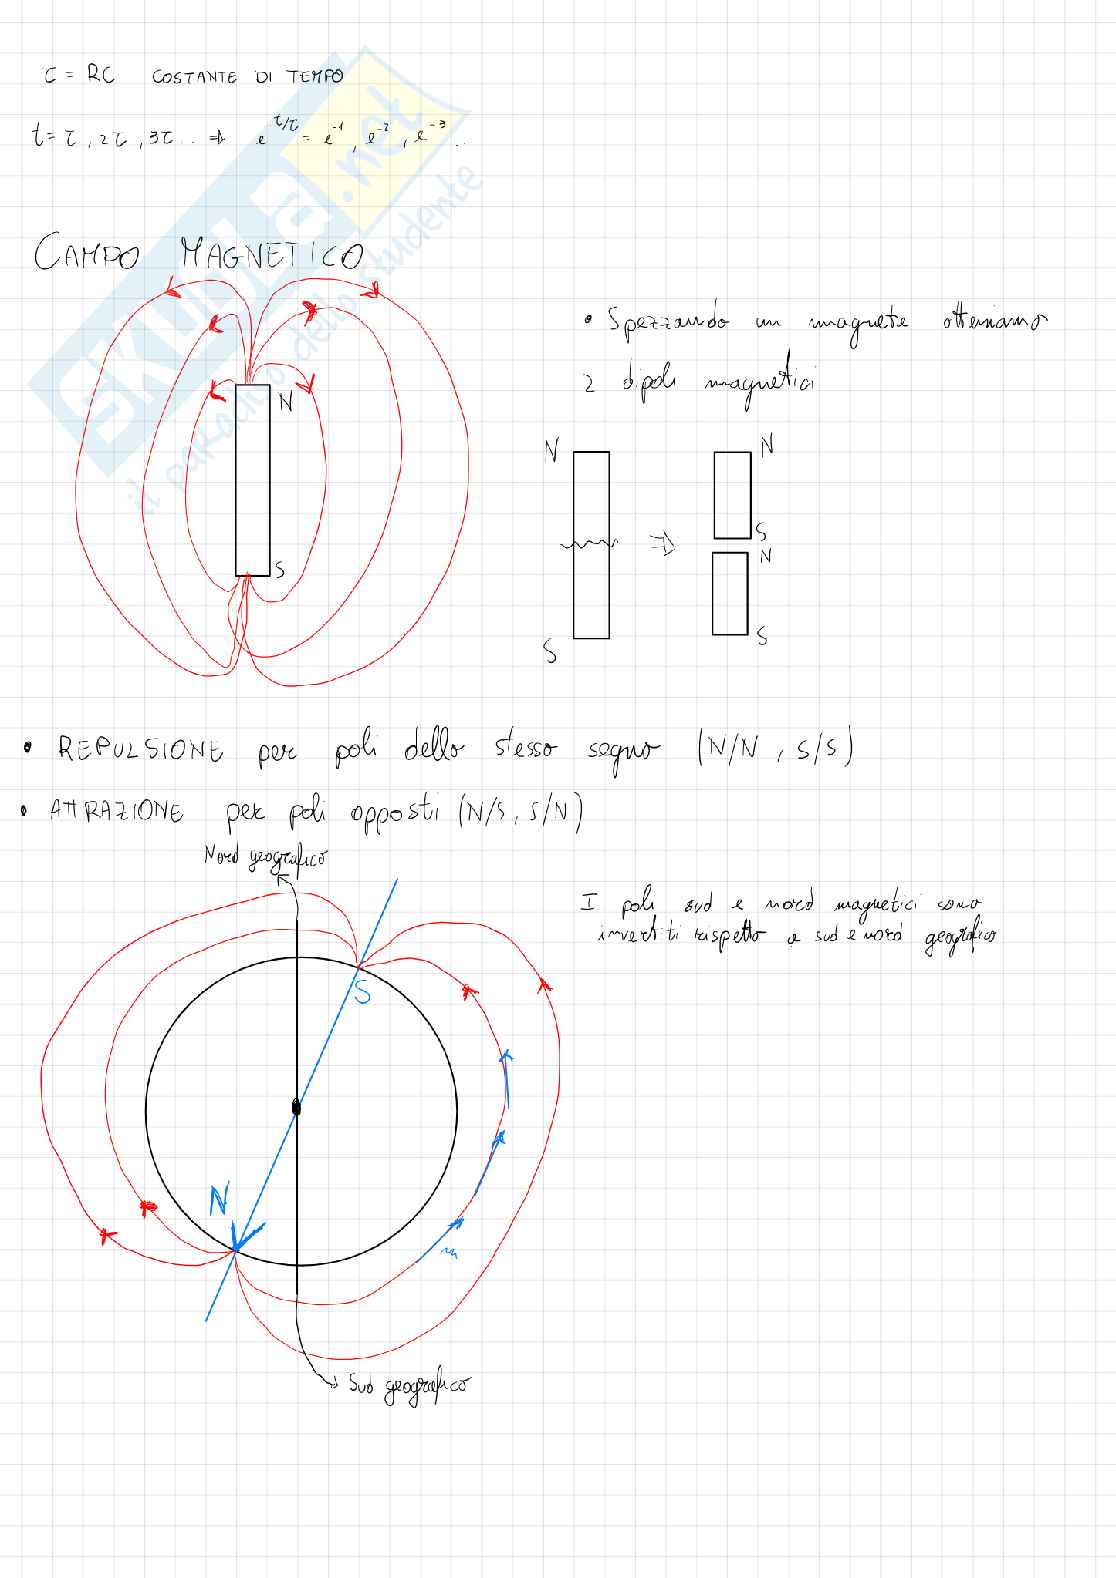 τ = RC COSTANTE DI TEMPO
t = τ, 2τ, 3τ... ⇒ e^t/τ = e^-1, e^-2, e^-3...
CAMPO MAGNETICO
• Spezzando un magnete otteniamo
2 dipoli magnetici
N
S
N
S
N
S
N
S
• REPULSIONE per poli dello stesso segno (N/N, S/S)
• ATTRAZIONE per poli opposti (N/S, S/N)
Nord geografico
I poli sud e nord magnetici sono
invertiti rispetto a sud e nord geografico
S
N
m
Sud geografico
SKUOLA.net
il paradiso dello studente